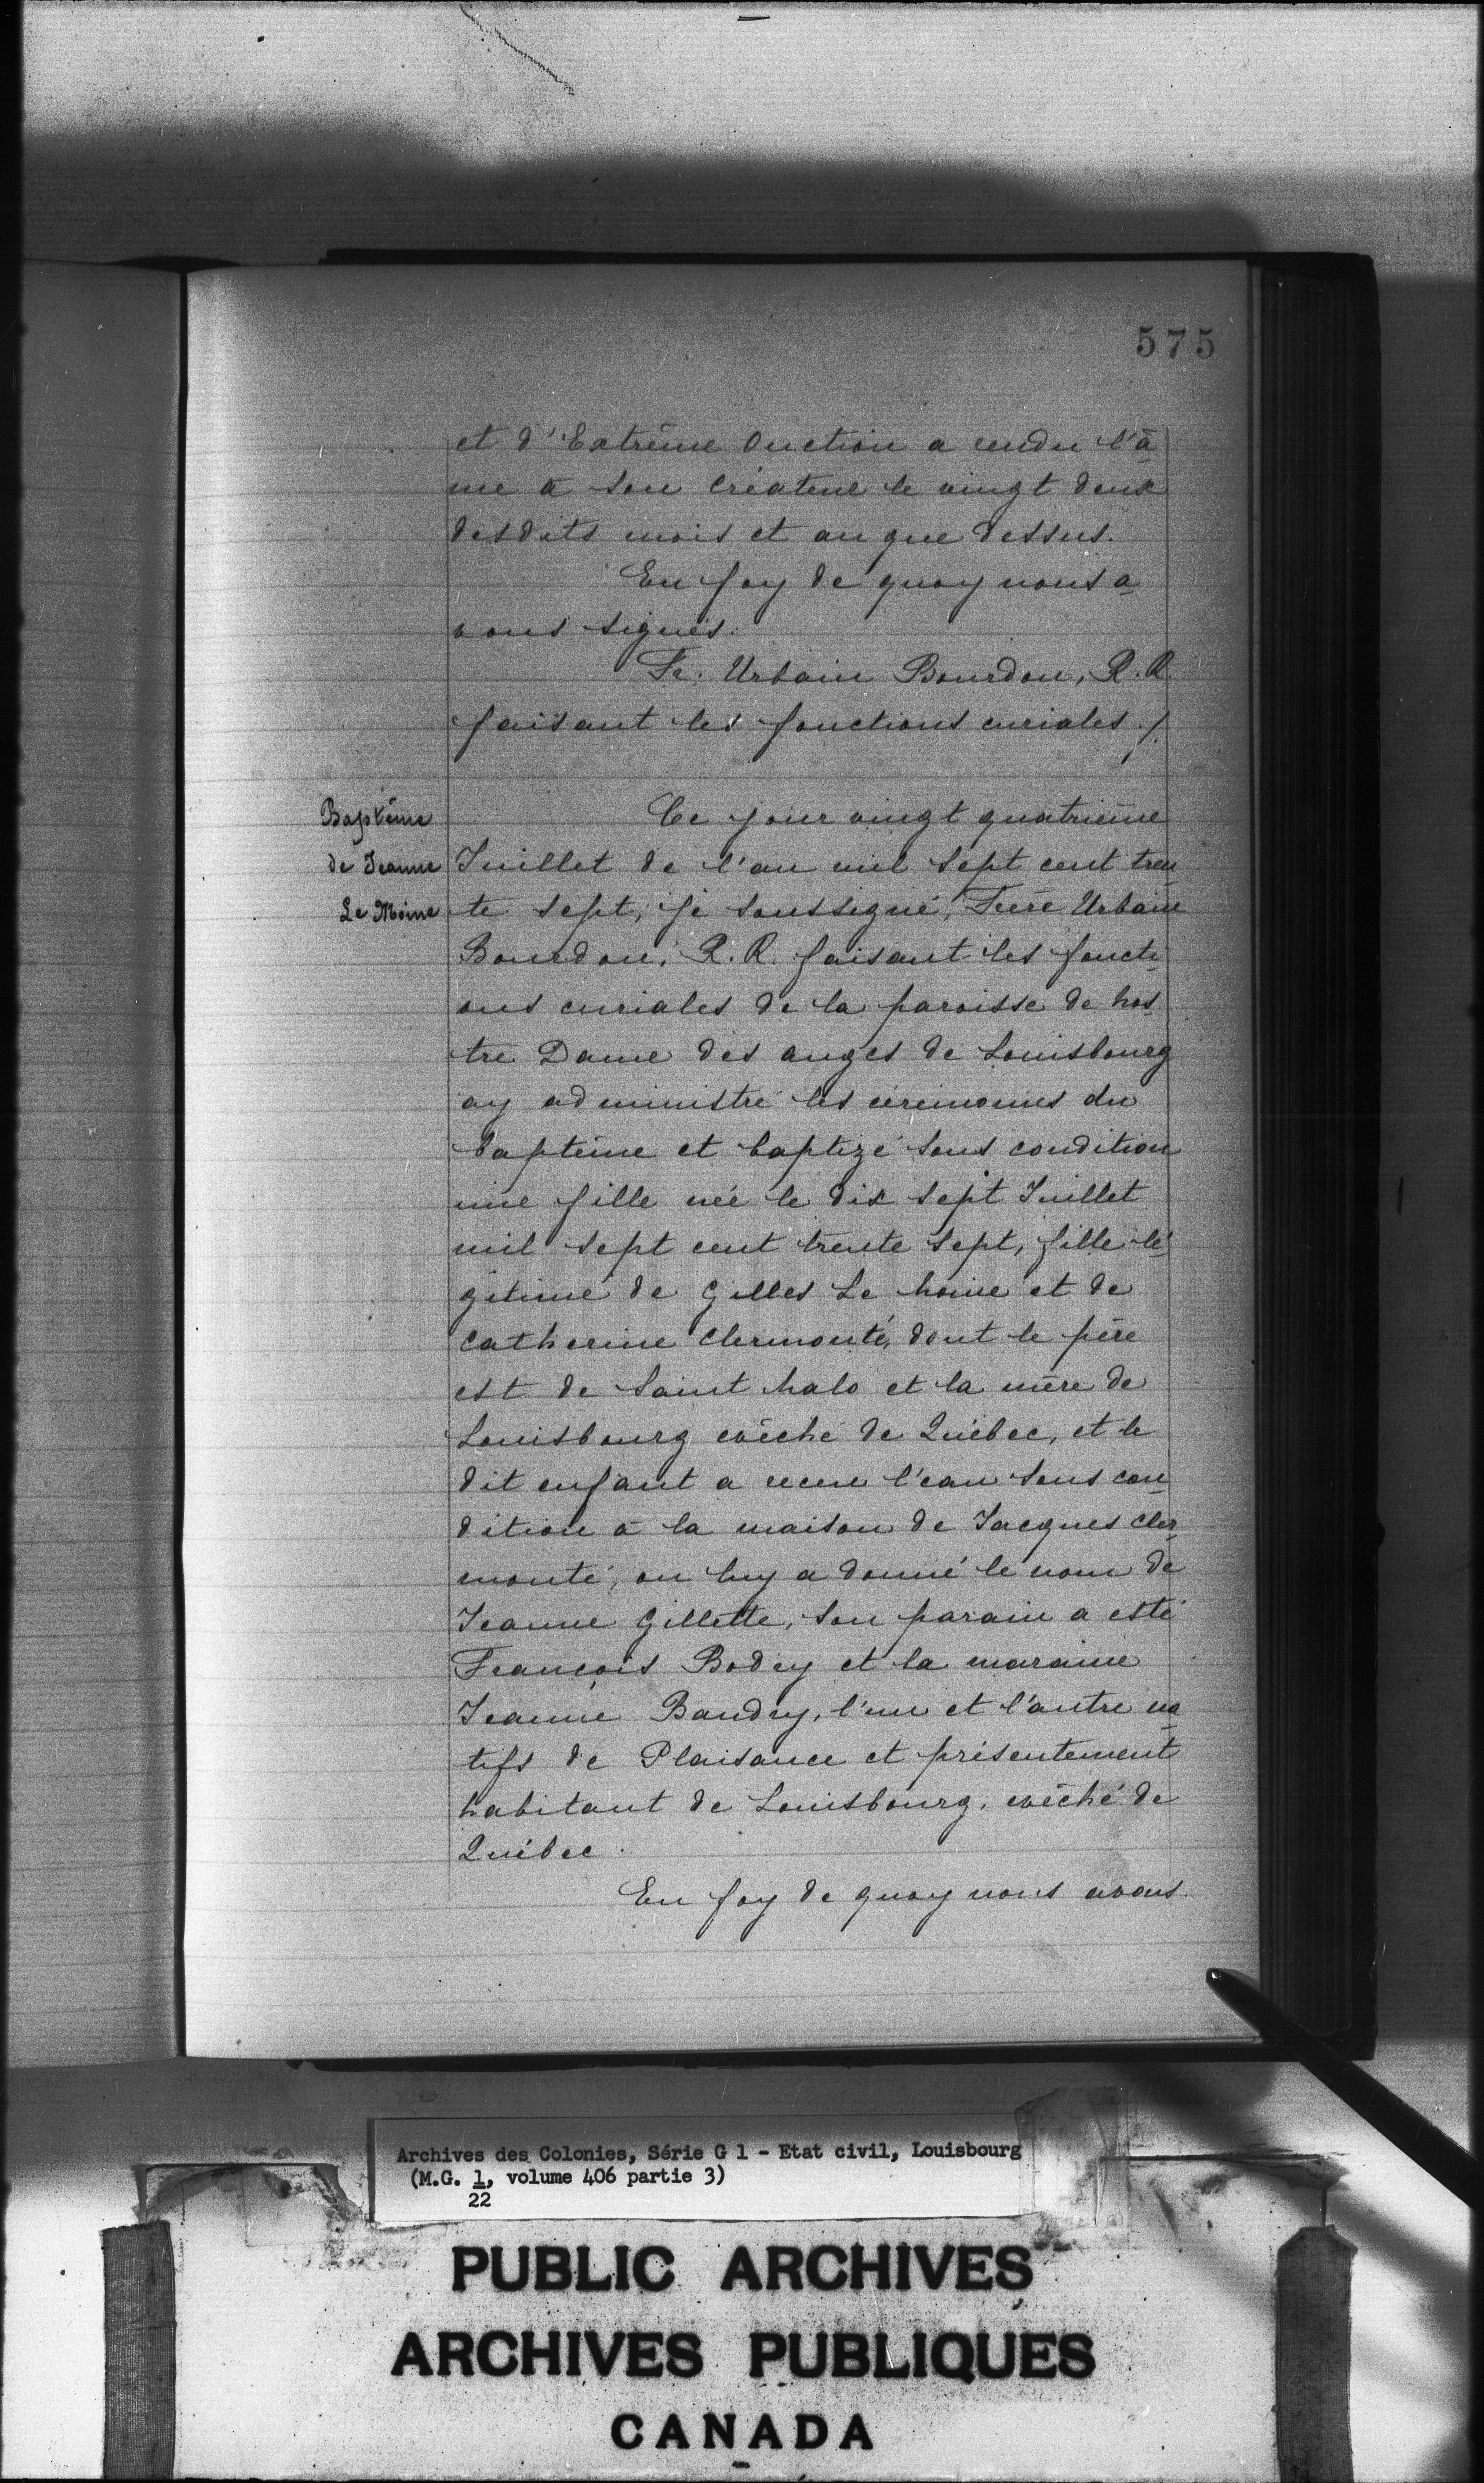 575
et d'Extrême Onction a rendu l'â
me à son Créateur le vingt deux
desdits mois et an que dessus.
En foy de quoy nous a
vons signés.
Fr. Urbain Bourdon, R. R.
faisant les fonctions curiales ./.
Baptême
de Jeanne
Le Moine
Ce jour vingt quatrième
Juillet de l'an mil sept cent tren
te sept, je soussigné, Frère Urbain
Bourdon, R. R. faisant les foncti
ons curiales de la paroisse de Nos
tre Dame des anges de Louisbourg
ay administré les cérémonies du
baptême et baptizé sous condition
une fille née le dix sept Juillet
mil sept cent trente sept, fille lé
gitime de Gilles Le Moine et de
Catherine Clermonté, dont le père
est de Saint Malo et la mère de
Louisbourg evêché de Québec, et le
dit enfant a receu l'eau sous con
dition à la maison de Jacques Cler
monté, on luy a donné le nom de
Jeanne Gillette, son parain a esté
François Bodey et la maraine
Jeanne Baudry, l'un et l'autre na
tifs de Plaisance et présentement
habitant de Louisbourg, evêché de
Québec.
En foy de quoy nous avons
Archives des Colonies, Série G 1 - Etat civil, Louisbourg
(M.G. 1, volume 406 partie 3)
22
PUBLIC ARCHIVES
ARCHIVES PUBLIQUES
CANADA